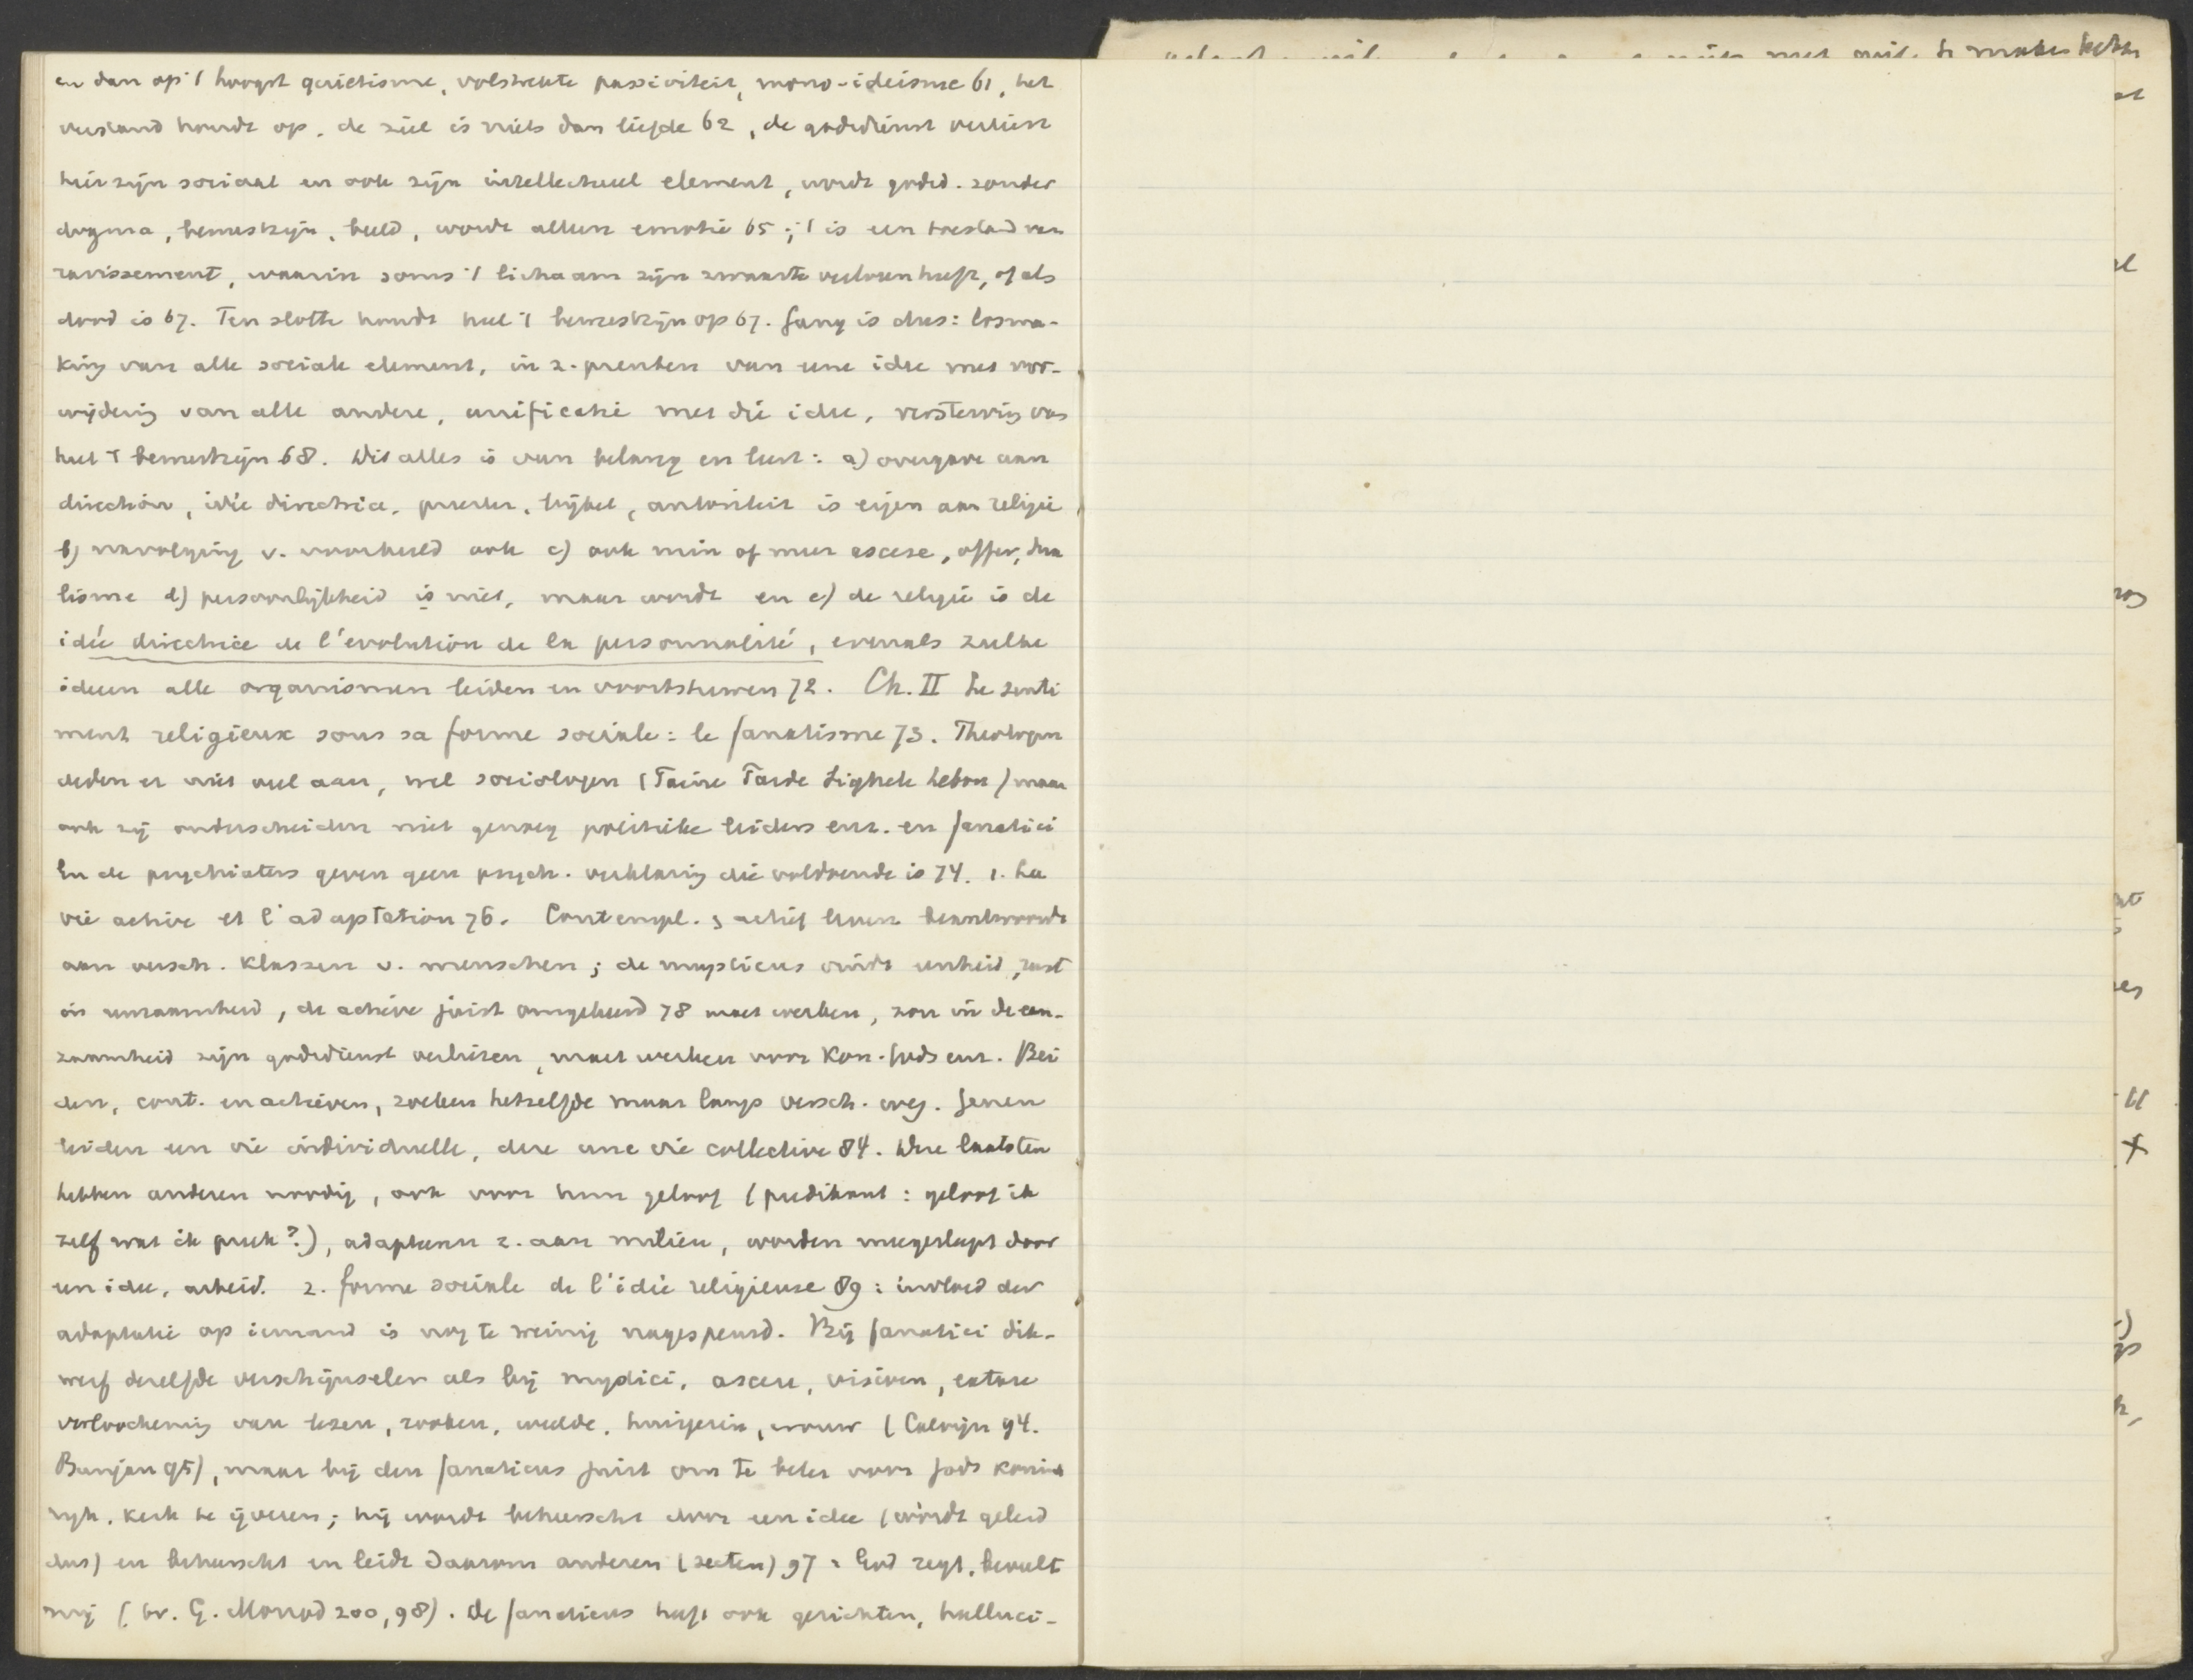 en dan op 't hoogst quietisme, volstrekte passiviteit, mono-ideisme 61, het
verstand houdt op, de ziel is niets dan liefde 62, de godsdienst verliest
hier zijn sociaal en ook zijn intellectueel element, wordt godsd. zonder
dogma, bewustzijn, beeld, wordt alleen emotie 65; 't is een toestand van
ravissement, waarin soms 't lichaam zijn zwaarte verloren heeft, of als
dood is 67. Ten slotte houdt heel 't bewustzijn op 67. Gang is dus: losma-
king van alle sociale element, in z. prenten van eene idee met ver-
wijdering van alle andere, unificatie met die idee, versterving van
heel 't bewustzijn 68. Dit alles is van belang en leert: a) overgave aan
direction, idée directrice, priester, bijbel, autoriteit is eigen aan religie
b) navolging v. voorbeeld ook c) ook min of meer ascese, offer, dua
lisme d) persoonlijkheid is niet, maar wordt en e) de religie is de
idée directrice de l'évolution de la personnalité, evenals zulke
ideen alle organismen leiden en voortstuwen 72. Ch. II Le senti
ment religieux sous sa forme sociale: le fanatisme 73. Theologen
deden er niet veel aan, wel sociologen (Taine Tarde Sighele Lebon) maar
ook zij onderscheiden niet genoeg politieke leiders enz. en fanatici
En de psychiaters geven geen psych. verklaring die voldoende is 74. 1. La
vie active et l'adaptation 76. Contempl. & actief leven beantwoordt
aan versch. klassen v. menschen; de mysticus vindt eenheid, rust
in eenzaamheid, de actieve juist omgekeerd 78 moet werken, zou in de een-
zaamheid zijn godsdienst verliezen, moet werken voor Kon. Gods enz. Bei
den, cont. en actieven, zoeken hetzelfde maar langs versch. weg. Genen
leiden een vie individuelle, deze une vie collective 84. Deze laatsten
hebben anderen noodig, ook voor hun geloof (predikant: geloof ik
zelf wat ik preek?), adapteeren z. aan milieu, worden meegesleept door
een idee, arbeid. 2. forme sociale de l'idée religieuse 89: invloed der
adaptatie op iemand is nog te weinig nagespeurd. Bij fanatici dik-
werf dezelfde verschijnselen als bij mystici, ascese, visioen, extase
verloochening van lezen, rooken, weelde, huisgezin, vrouw (Calvijn 94.
Bunjan 95), maar bij den fanaticus juist om te beter voor Gods konink
rijk, kerk te ijveren; hij wordt beheerscht door een idee (wordt geleid
dus) en beheerscht en leidt daarom anderen (secten) 97: God zegt, beveelt
mij (bv. G. Monod 200, 98). De fanaticus heeft ook gezichten, halluci-